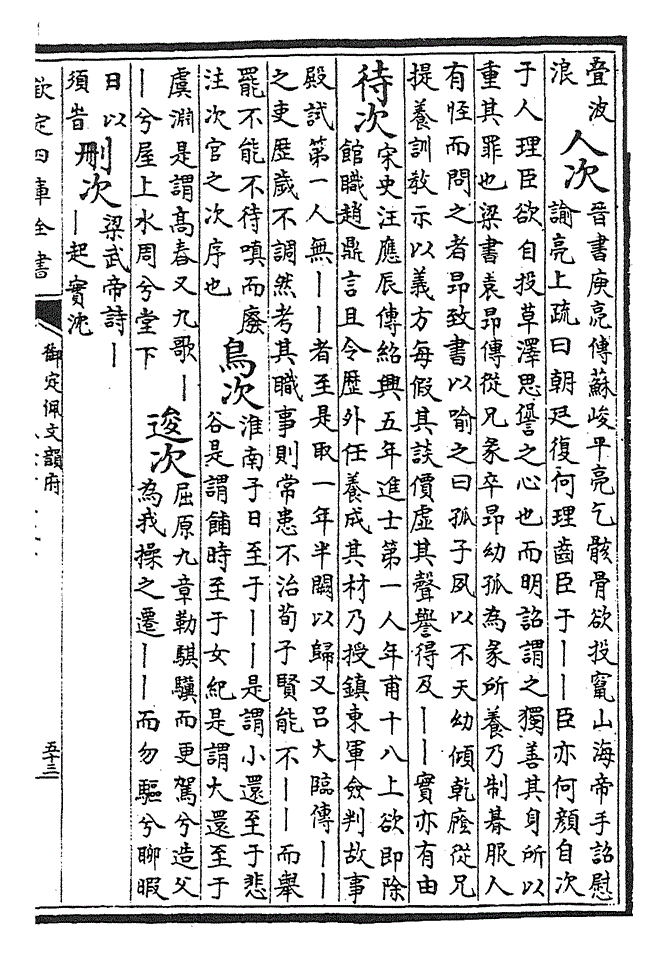 叠波
浪
人次
晉書庾亮傳蘇峻平亮乞骸骨欲投竄山海帝手詔慰
諭亮上疏曰朝廷復何理齒臣于——臣亦何顏自次
于人理臣欲自投草澤思愆之心也而明詔謂之獨善其身所以
重其罪也梁書袁昂傳從兄彖卒昂幼孤為彖所養乃制朞服人
有怪而問之者昂致書以喻之曰孤子夙以不天幼傾乾廕從兄
提養訓教示以義方每假其談價虛其聲譽得及——實亦有由
待次
宋史汪應辰傳紹興五年進士第一人年甫十八上欲即除
館職趙鼎言且令歷外任養成其材乃授鎮東軍僉判故事
殿試第一人無——者至是取一年半闕以歸又呂大臨傳——
之吏歷歲不調然考其職事則常患不治荀子賢能不——而舉
罷不能不待嗔而廢
注次官之次序也
鳥次
淮南子日至于——是謂小還至于悲
谷是謂餔時至于女紀是謂大還至于
虞淵是謂高舂又九歌—
—兮屋上水周兮堂下
逡次
屈原九章勒騏驥而更駕兮造父
為我操之遷——而勿驅兮聊暇
日以
須旹
刪次
梁武帝詩—
—起實沈
欽定四庫全書
御定佩文韻府
五十三